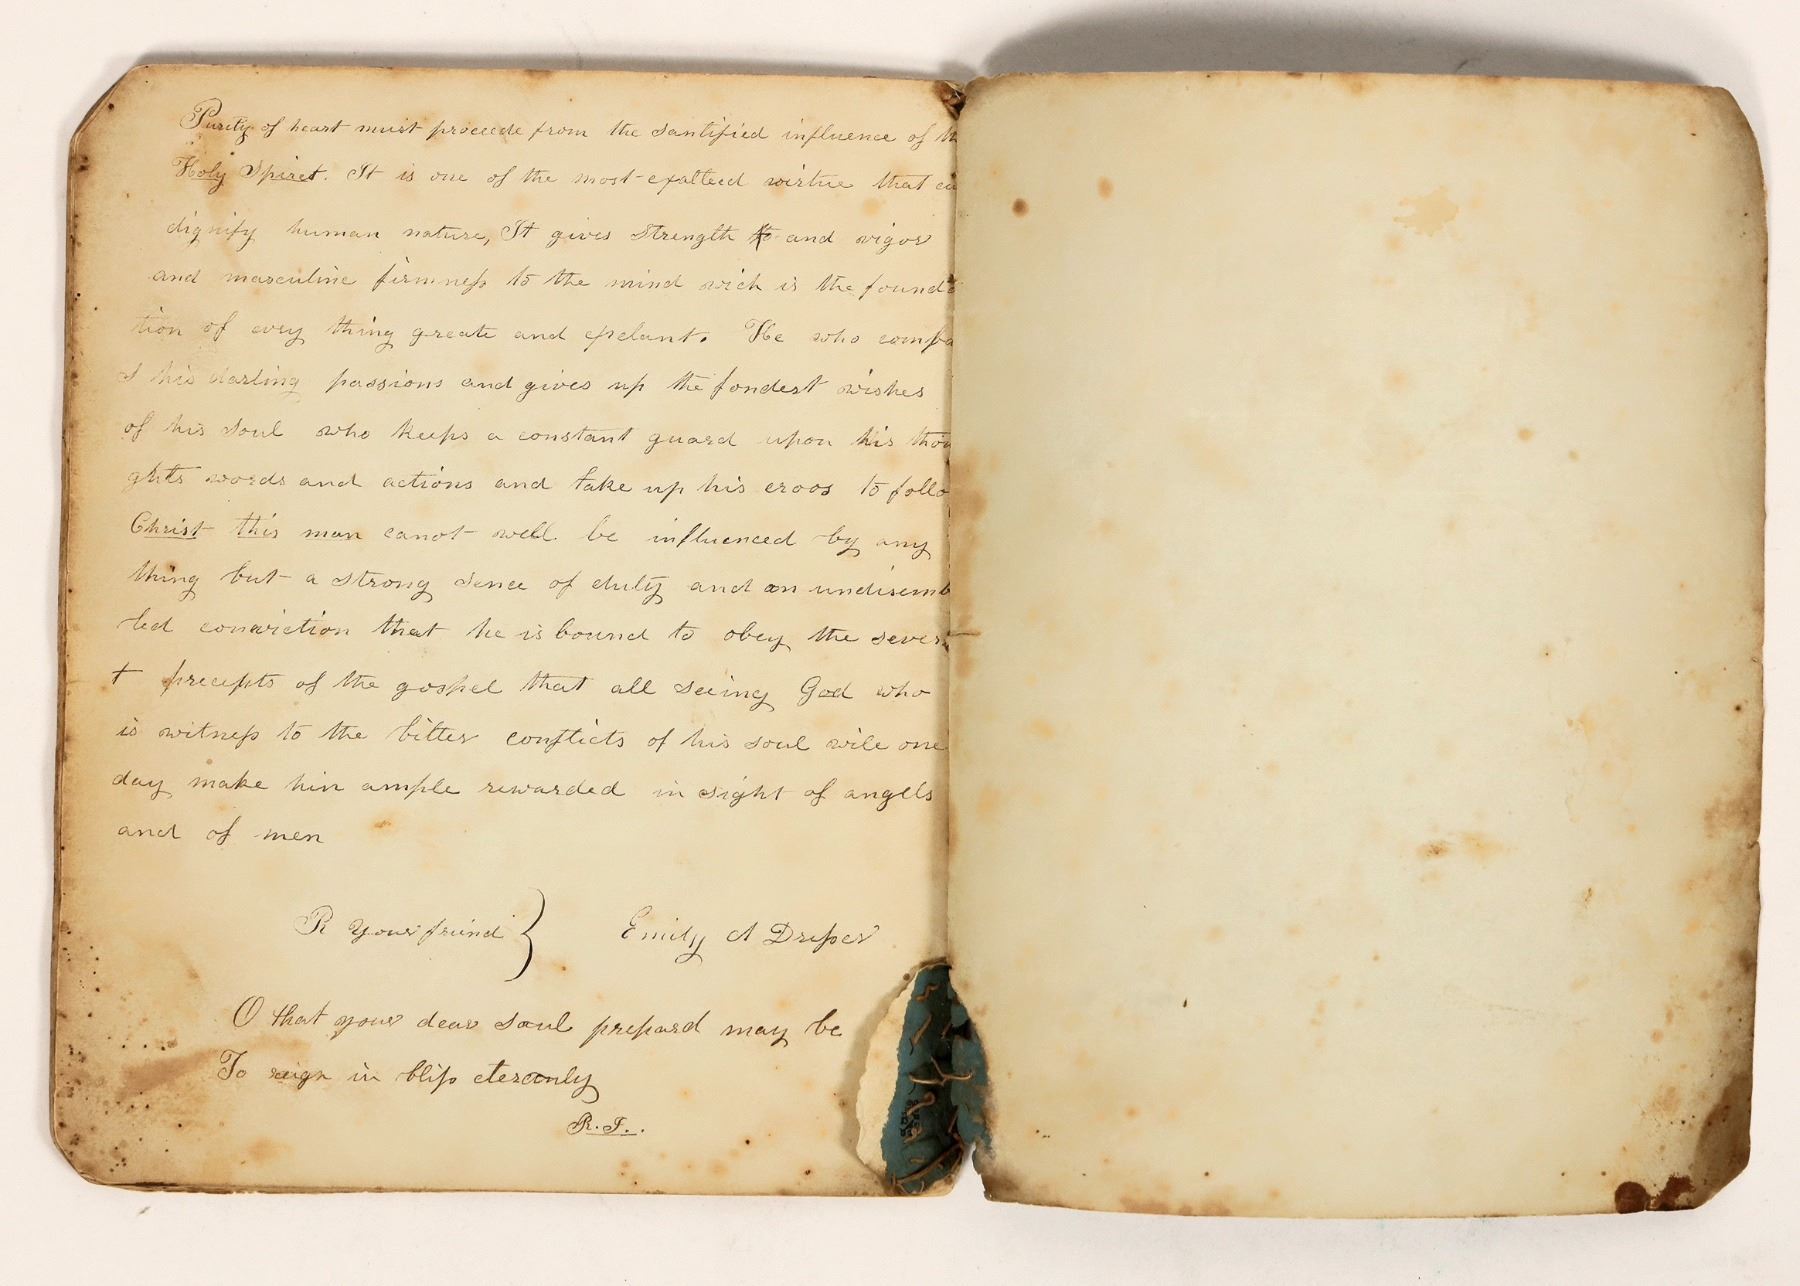 Purity of heart must proceede from the santified influence of th
Holy Spiret. It is one of the most exalteed virtue that ca
dignify human nature, It gives strength to and vigor
and masculine firmness to the mind wich is the founda
tion of evry thing greate and exelant. He who comba
t his darling passions and gives up the fondest wishes
of his soul who keeps a constant guard upon his thou
ghts words and actions and take up his cross to follo
Christ this man canot well be influenced by any
thing but a strong sence of duty and an undisemb
led conviction that he is bound to obey the seves
t precepts of the gospel that all seeing God who
is witness to the bitter conflicts of his soul wile one
day make him ample rewarded in sight of angels
and of men
R Your friend } Emily A Dreper
O that your dear soul prepard may be
To reign in bliss eteranly
R. I..